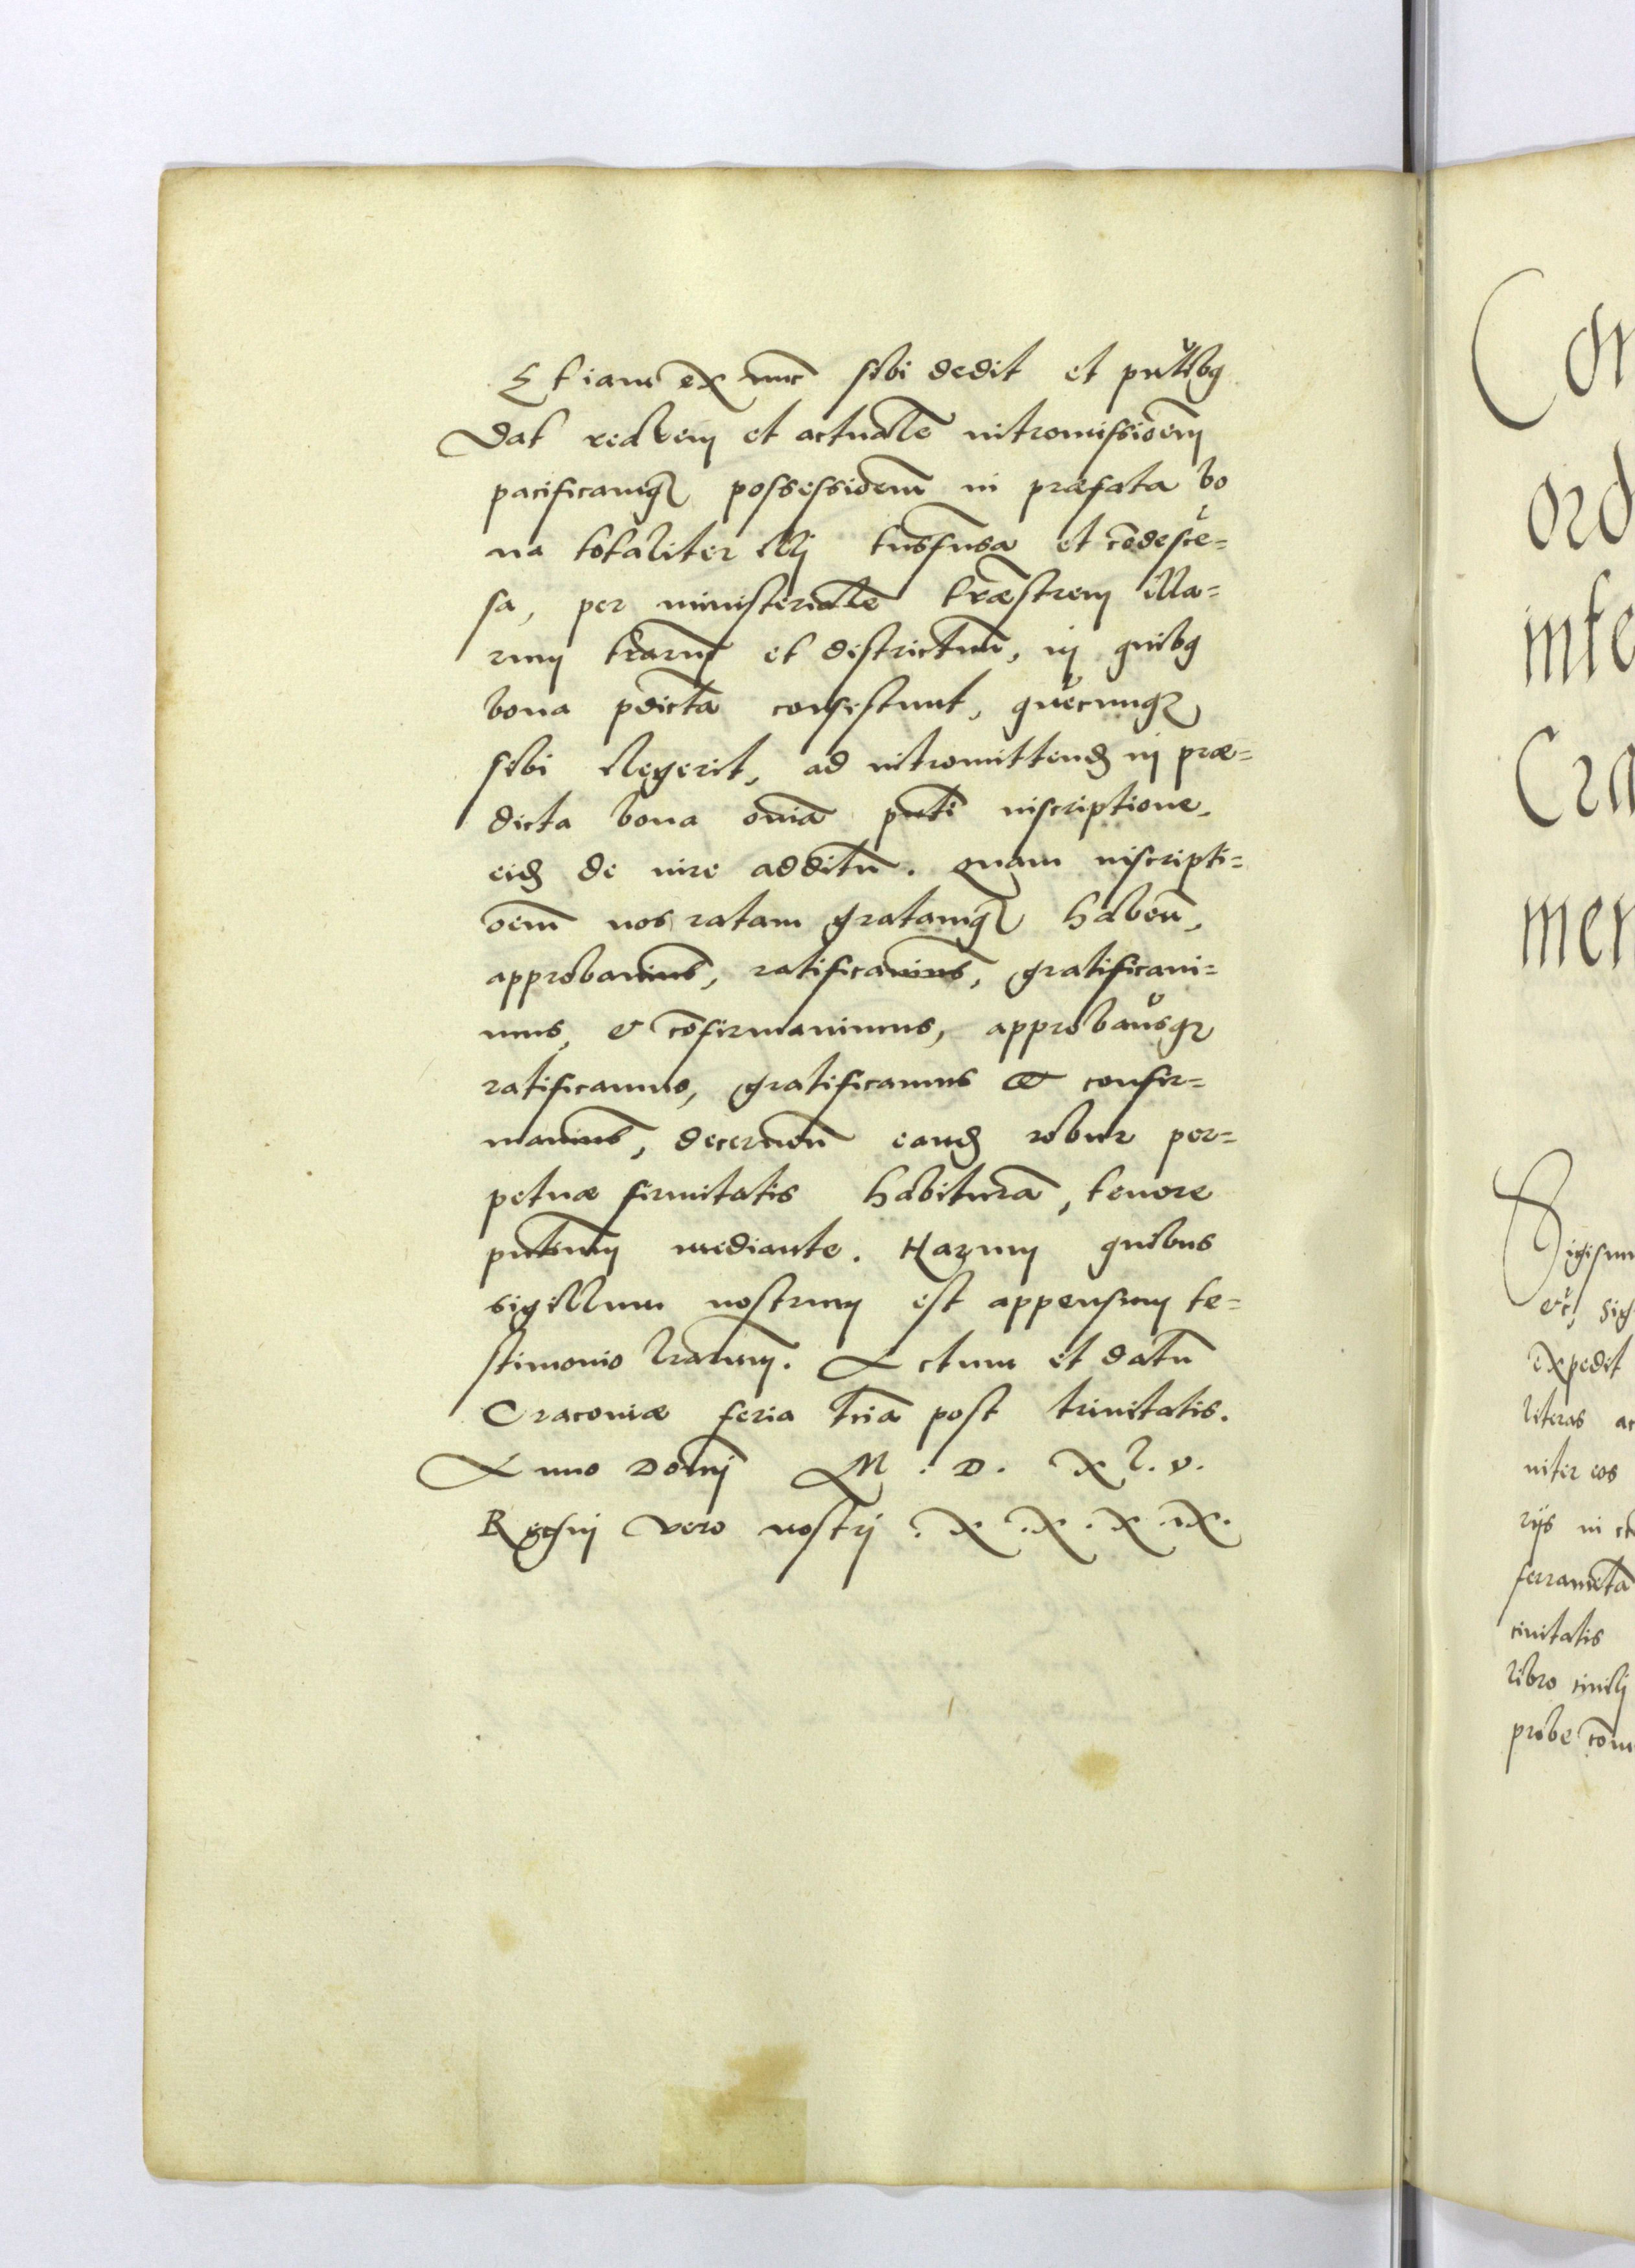 Etiam ex nūc sibi dedit et pn̄tibꝫ
Dat realem et actualē intromissiōem
pacificamqꝫ possessiōem in præfata bo
na totaliter illi tn̄sfusa et cōdescē=
sa, per ministerialē tr̄æstrem illa=
rum tr̄arum et districtum, in quibꝫ
bona pdicta consistunt, quēcunqꝫ
sibi elegerit, ad intromittendꝫ in præ=
dicta bona om̄ia pn̄ti inscriptione,
eidꝫ de iure additū. Quam inscripti=
oēm nos ratam gratamqꝫ haben̄,
approbauimꝰ, ratificauimꝰ, gratificaui=
mus, & cōfirmauimus, approbam̄usqꝫ
ratificamus, gratificamus et confir=
mamus, decernen̄ eandꝫ robur per=
petuæ firmitatis habiturā, tenore
pn̄tium mediante. Harum quibus
sigillum nostrum est appensum te=
stimonio lr̄arum. Actum et datū
Cracouiæ feria tr̄ia post trinitatis.
Anno Domj M. D. Xl. v.
Regni vero nostrj .X.X.X.IX.
Con
ord
inte
Cra
men
Sigism
&c, Sig
expedit
literas ac
niter eos
rijs in
ferramēta
ciuitatis
libro ciuilj
probe com